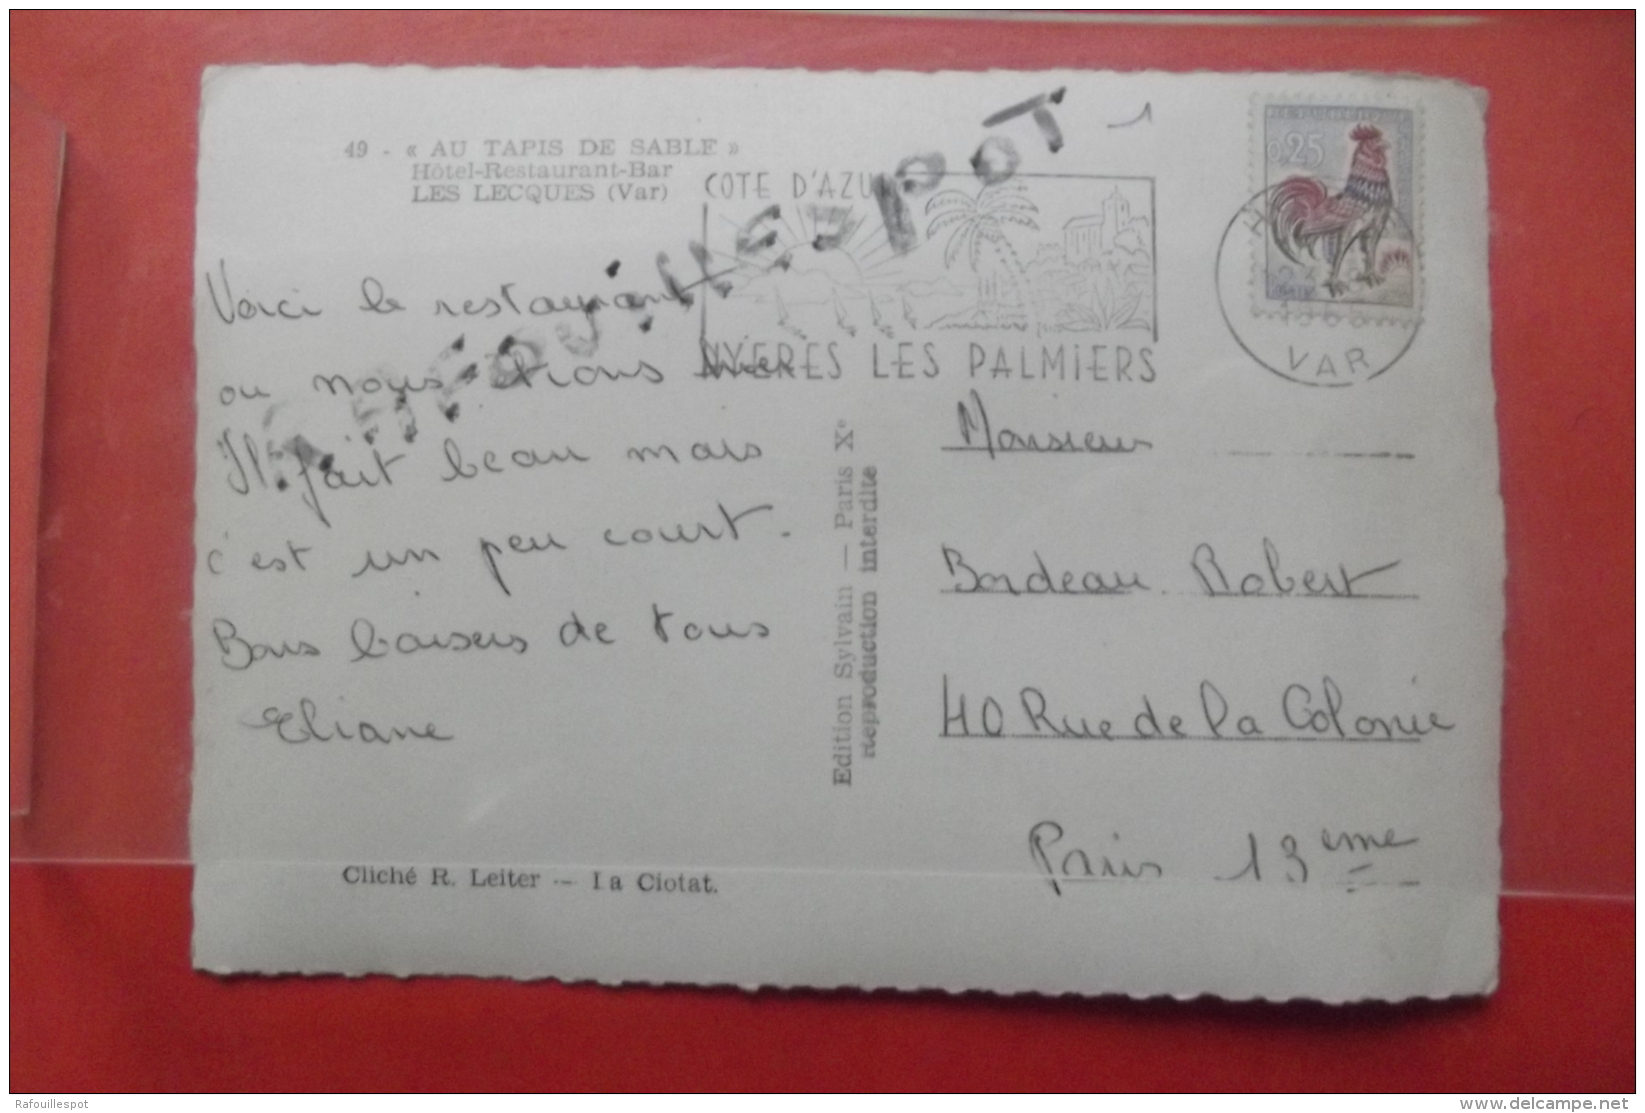 49 - « AU TAPIS DE SABLE »
Hôtel-Restaurant-Bar
LES LECQUES (Var)
COTE D'AZUR
HYERES LES PALMIERS
0,25
VAR
1
Voici le restaurant
ou nous étions hier
Il fait beau mais
c'est un peu court.
Bons baisers de tous
Eliane
Cliché R. Leiter -- La Ciotat.
Edition Sylvain — Paris Xe
Reproduction interdite
Monsieur
Bordeau Robert
40 Rue de la Colonie
Paris 13eme
Rafouillespot
www.delcampe.net